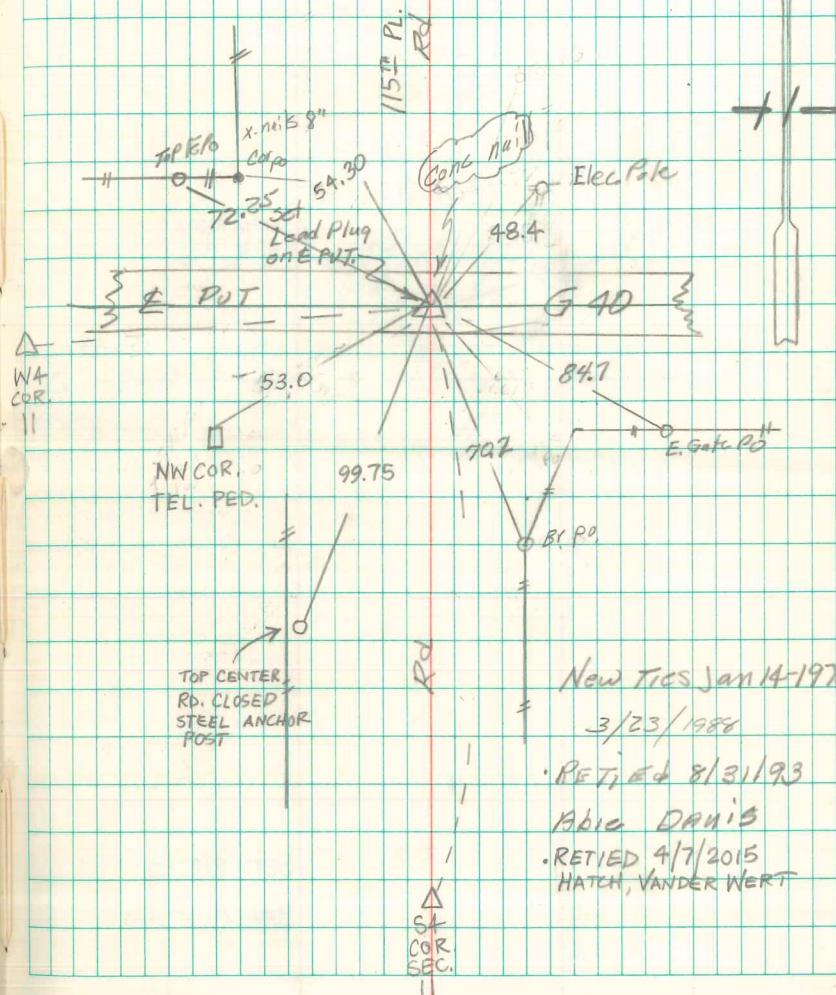 115TH PL.
Rd
x-nails 8"
Top E Po
Cor po
54.30
Conc nail
Elec. Pole
72.25
Set
Lead Plug
on ℄ PVT.
48.4
℄ PVT
G 40
W4
COR.
11
53.0
84.7
E. Gate Po
NW COR.
TEL. PED.
99.75
70.2
Br. Po.
Rd
TOP CENTER
RD. CLOSED
STEEL ANCHOR
POST
New Ties Jan 14-197
3/23/1988
• RETIEd 8/31/93
Abie Danis
• RETIED 4/7/2015
HATCH, VANDER WERT
S4
COR
SEC.